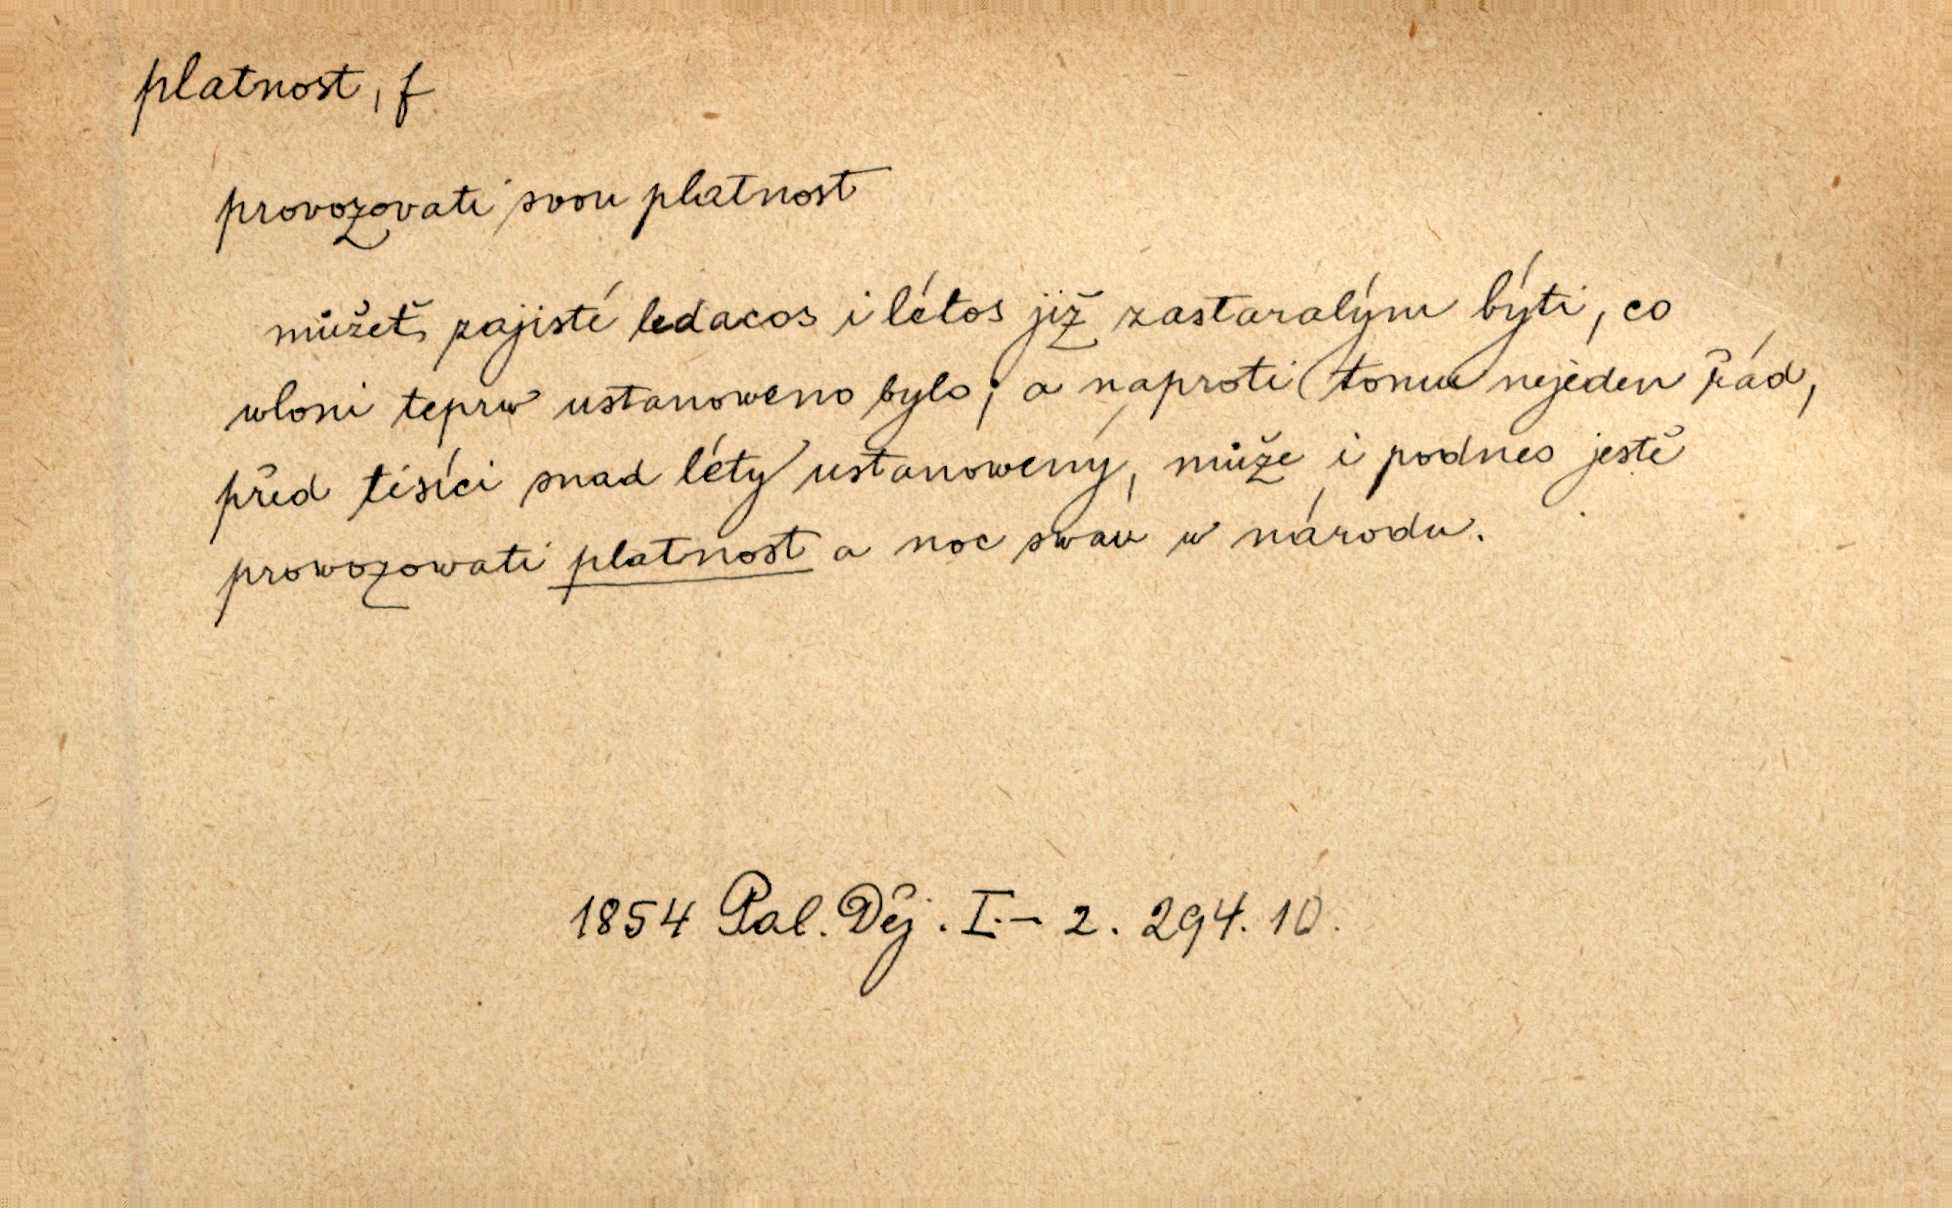 platnost, f
provozovati svou platnost
můžeť zajisté ledacos i létos již zastaralým býti, co
wloni teprw ustanoweno bylo; a naproti tomu nejeden řád,
před tisíci snad léty ustanowený, může i podnes jestě
prowozowati platnost a noc swau w národu.
1854 Pal. Děj. I.- 2. 294. 10.